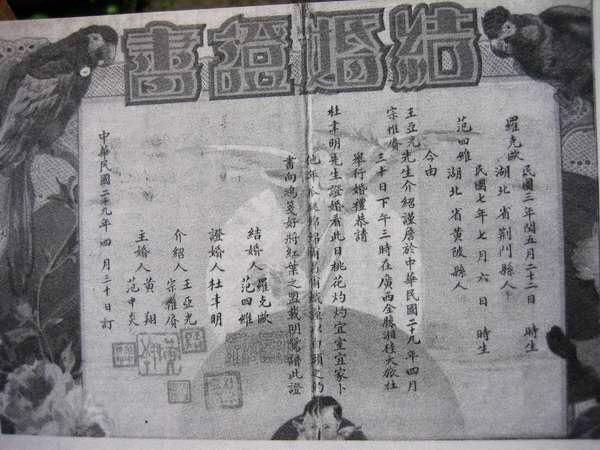 結婚證書
羅克歐 民國三年閏五月二十二日 時生
湖北省荆門縣人
范四維 民國七年七月六日 時生
湖北省黄陂縣人
今由
王亞光
宗維賡 先生介紹謹房於中華民國二十九年四月
三十日下午三時在廣西全縣湘桂大旅社
舉行婚禮恭請
杜聿明先生證婚看此日桃花灼灼宜室宜家卜
他年瓜瓞綿綿爾昌爾熾謹以白頭之約
書向鴻箋好將紅葉之盟載明鴛譜此證
結婚人 羅克歐
范四維
證婚人 杜聿明
介紹人 王亞光
宗維賡
主婚人 黄翔
范中炎
中華民國二十九年四月三十日訂